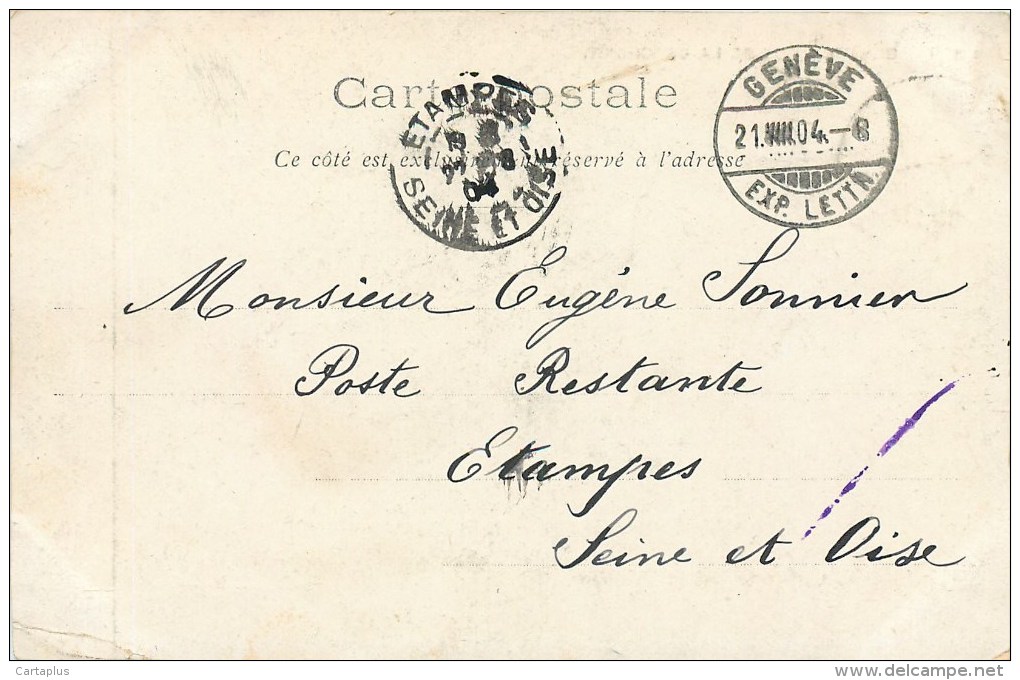 Carte Postale
Ce côté est exclusivement réservé à l'adresse
ETAMPES
04
SEINE ET OISE
GENÈVE
21.VIII.04.–8
EXP. LETTR.
Monsieur Eugène Sonnier
Poste Restante
Etampes
Seine et Oise
Cartaplus
www.delcampe.net